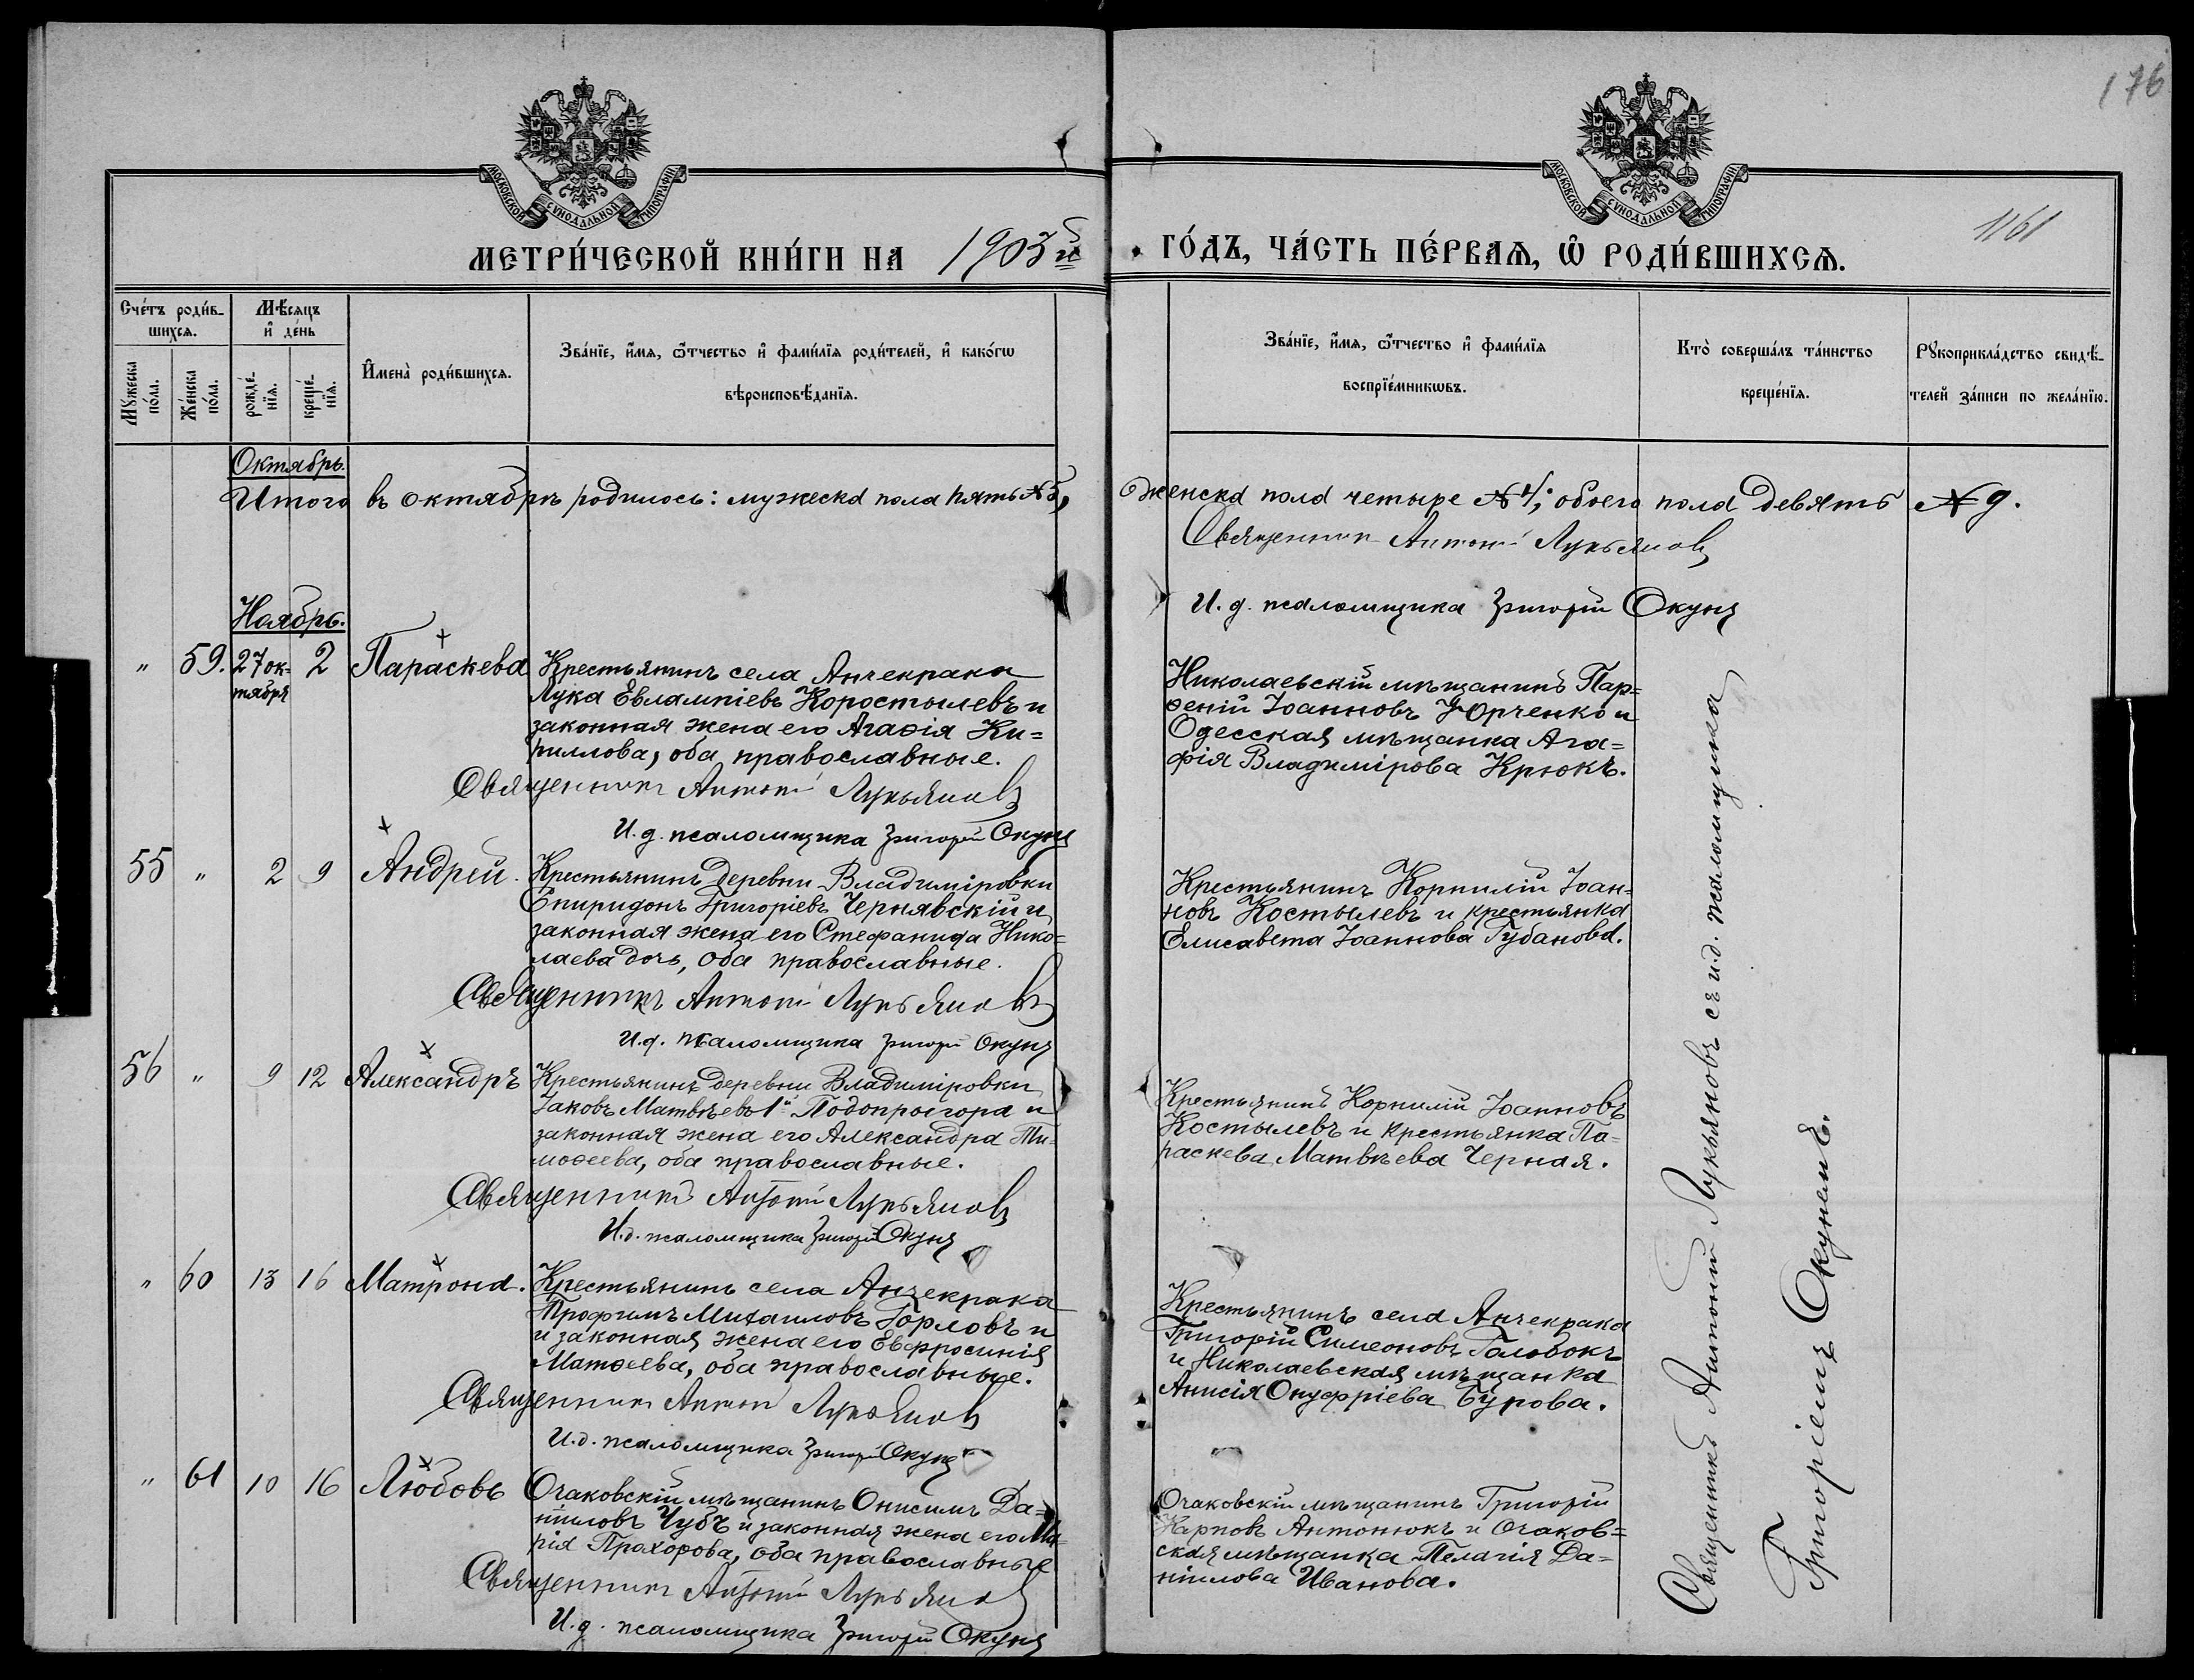 176
МОСКОВСКОЙ СѴНОДАЛЬНОЙ ТИПОГРАФІИ
МОСКОВСКОЙ СѴНОДАЛЬНОЙ ТИПОГРАФІИ
1161
МЕТРИ́ЧЕСКОЙ КНИ́ГИ НА 1903й ГО́ДЪ, ЧА́СТЬ ПЕ́РВАѦ, Ѡ҆ РОДИ́ВШИХСѦ.
Сче́тъ роди́в-
шихсѧ.
Мꙋжеска
по́ла.
Же́нска
по́ла.
Мѣ́сѧцъ
и҆ де́нь
рожде́-
нїѧ.
креще́-
нїѧ.
И҆мена̀ роди́вшихсѧ.
Зва́нїе, и҆́мѧ, ѻ҆́тчество и҆ фами́лїѧ роди́телей, и҆ како́гѡ
вѣроисповѣ́данїѧ.
Зва́нїе, и҆́мѧ, ѻ҆́тчество и҆ фами́лїѧ
воспрїе́мникѡвъ.
Кто̀ соверша́лъ та́инство
креще́нїѧ.
Рꙋкоприкла́дство свидѣ́-
телей за́писи по жела́нїю.
Октябрь.
Итого въ октябрѣ родилось: мужеска пола пять № 5, женска пола четыре № 4; обоего пола девять № 9.
Священникъ Антоній Лукьяновъ
И. д. псаломщика Григорій Окунь
Ноябрь.
" 59. 27 ок-
тября 2 Параскева
Крестьянинъ села Анчекрака
Лука Евлампіевъ Коростылевъ и
законная жена его Агаѳія Ки=
риллова, оба православные.
Священникъ Антоній Лукьяновъ
И. д. псаломщика Григорій Окунь
Николаевскій мѣщанинъ Пар=
ѳеній Іоанновъ Юрченко и
Одесская мѣщанка Ага=
фія Владимірова Крюкъ.
55 " 2 9 Андрей.
Крестьянинъ деревни Владиміровки
Спиридонъ Григоріевъ Чернявскій и
законная жена его Стефанида Нико=
лаева дочь, оба православные.
Священникъ Антоній Лукьяновъ
И. д. псаломщика Григорій Окунь
Крестьянинъ Корнилій Іоан=
новъ Костылевъ и крестьянка
Елисавета Іоаннова Губанова.
56 " 9 12 Александръ
Крестьянинъ деревни Владиміровки
Іаковъ Матвѣевъ 1й Подопригора и
законная жена его Александра Ти-
моѳеева, оба православные.
Священникъ Антоній Лукьяновъ
И. д. псаломщика Григорій Окунь
Крестьянинъ Корнилій Іоанновъ
Костылевъ и крестьянка Па=
раскева Матвѣева Черная.
" 60 13 16 Матрона.
Крестьянинъ села Анчекрака
Трофимъ Михаиловъ Горловъ и
и законная жена его Евфросинія
Матѳеева, оба православные.
Священникъ Антоній Лукьяновъ
И. д. псаломщика Григорій Окунь
Крестьянинъ села Анчекрака
Григорій Симеоновъ Голобокъ
и Николаевская мѣщанка
Анисія Онуфріева Бурова.
" 61 10 16 Любовь
Очаковскій мѣщанинъ Онисимъ Да=
ніиловъ Чубъ и законная жена его Ма-
рія Прохорова, оба православные
Священникъ Антоній Лукьяновъ
И. д. псаломщика Григорій Окунь
Очаковскій мѣщанинъ Григорій
Карповъ Антонюкъ и Очаков=
ская мѣщанка Пелагія Да=
ніилова Иванова.
Священникъ Антоній Лукьяновъ съ и. д. псаломщика
Григоріемъ Окунемъ.